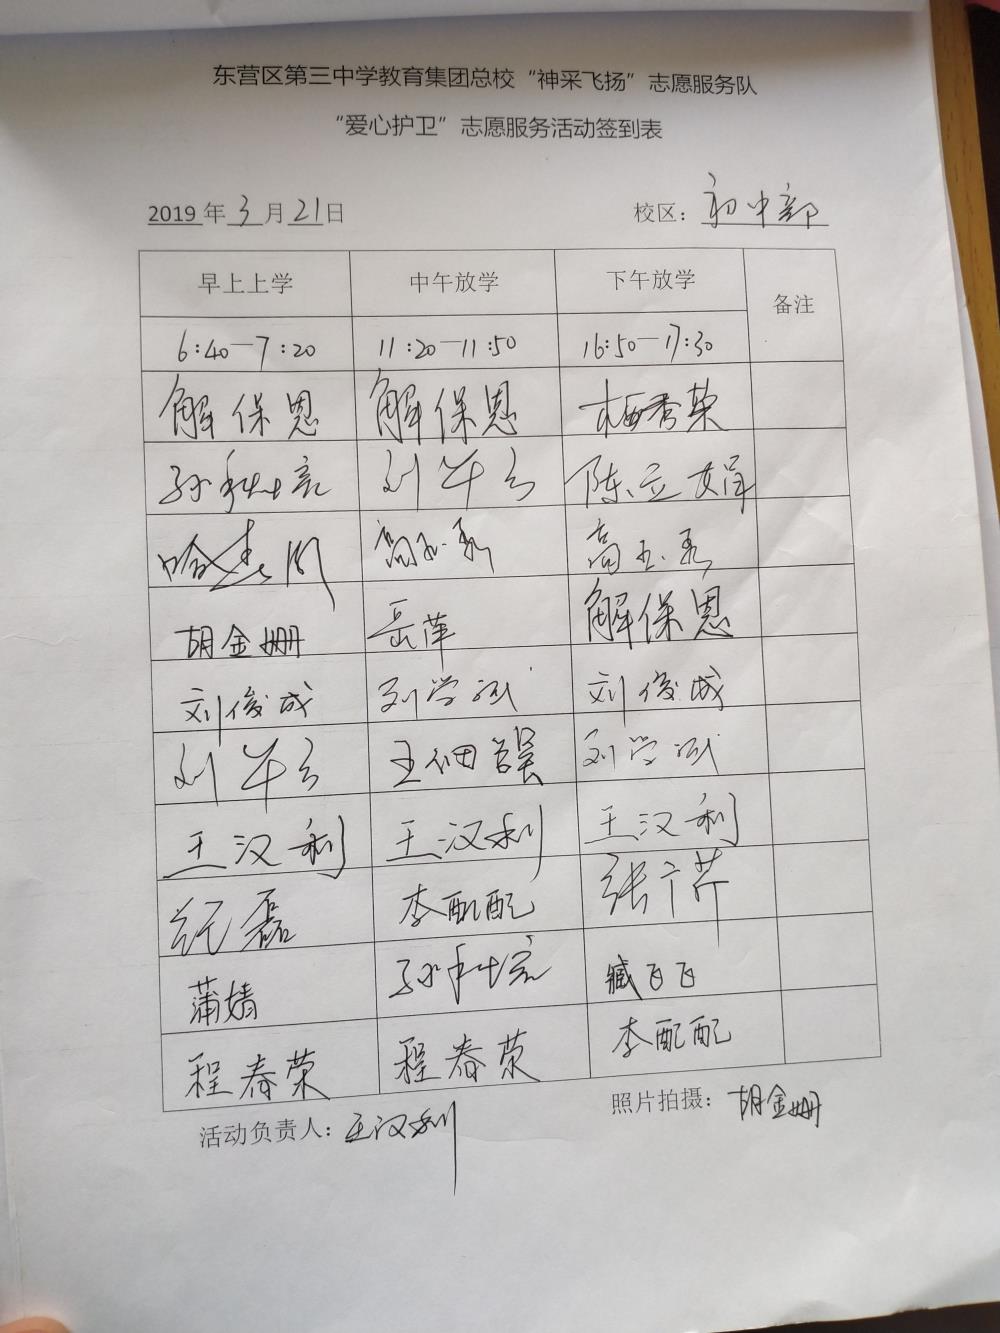 东营区第三中学教育集团总校“神采飞扬”志愿服务队
“爱心护卫”志愿服务活动签到表
2019年3月21日 校区：初中部
早上上学 中午放学 下午放学 备注
6:40—7:20 11:20—11:50 16:50—17:30
解保恩 解保恩 梅秀荣
孙 刘 陈立娟
高玉秀 高玉秀
胡金姗 岳萍 解保恩
刘俊成 刘学斌 刘俊成
刘 王 刘学斌
王汉利 王汉利 王汉利
纪磊 李配配 张广芹
蒲婧 孙 臧飞飞
程春荣 程春荣 李配配
活动负责人：王汉利 照片拍摄：胡金姗